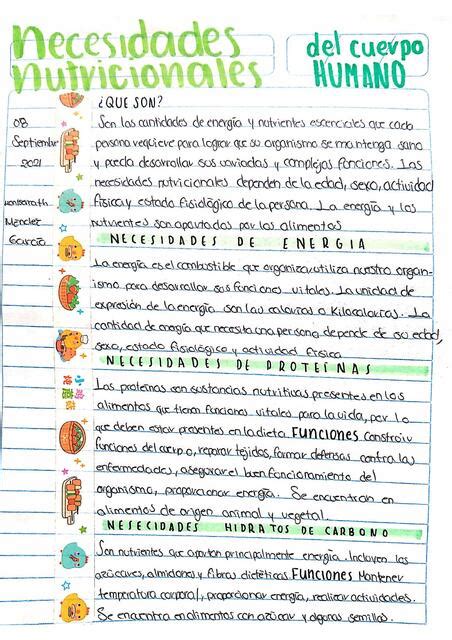 Necesidades
nutricionales
del cuerpo
HUMANO
08
Septiembre
2021
Méndez
García
¿QUE SON?
Son las cantidades de energía y nutrientes escenciales que cada
persona requiere para lograr que su organismo se mantenga sano
y pueda desarrollar sus variadas y complejas funciones. Las
necesidades nutricionales dependen de la edad, sexo, actividad
física y estado fisiológico de la persona. La energía y los
nutrientes son aportados por los alimentos
NECESIDADES DE ENERGIA
La energía es el combustible que organiza, utiliza nuestro organ-
ismo para desarrollar sus funciones vitales. La unidad de
expresión de la energía son las calorías o Kilocalorías. La
cantidad de energía que necesita una persona depende de su edad,
sexo, estado fisiológico y actividad física
NECESIDADES DE PROTEÍNAS
Las proteínas son sustancias nutritivas presentes en los
alimentos que tienen funciones vitales para la vida, por lo
que deben estar presentes en la dieta. FUNCIONES Construir
funciones del cuerpo, reparar tejidos, formar defensas contra las
enfermedades, asegurar el buen funcionamiento del
organismo, proporcionar energía. Se encuentran en
alimentos de origen animal y vegetal.
NESECIDADES HIDRATOS DE CARBONO
Son nutrientes que aportan principalmente energía. Incluyen los
azúcares, almidones y fibras dietéticas. FUNCIONES Mantener
temperatura corporal, proporcionar energía, realizar actividades.
Se encuentra en alimentos con azúcar y algunas semillas.